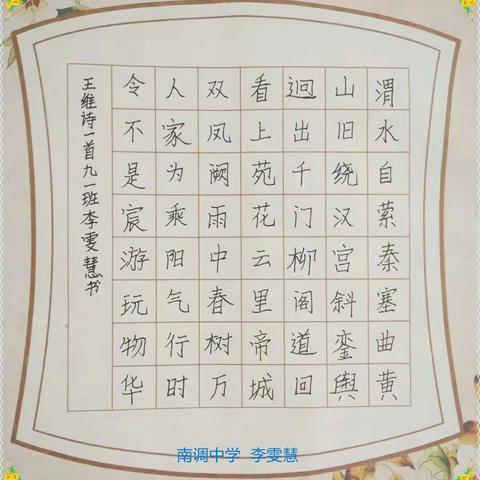 渭水自萦秦塞曲黄
山旧绕汉宫斜銮舆
迥出千门柳阁道回
看上苑花云里帝城
双凤阙雨中春树万
人家为乘阳气行时
令不是宸游玩物华
王维诗一首九一班李雯慧书
南调中学 李雯慧